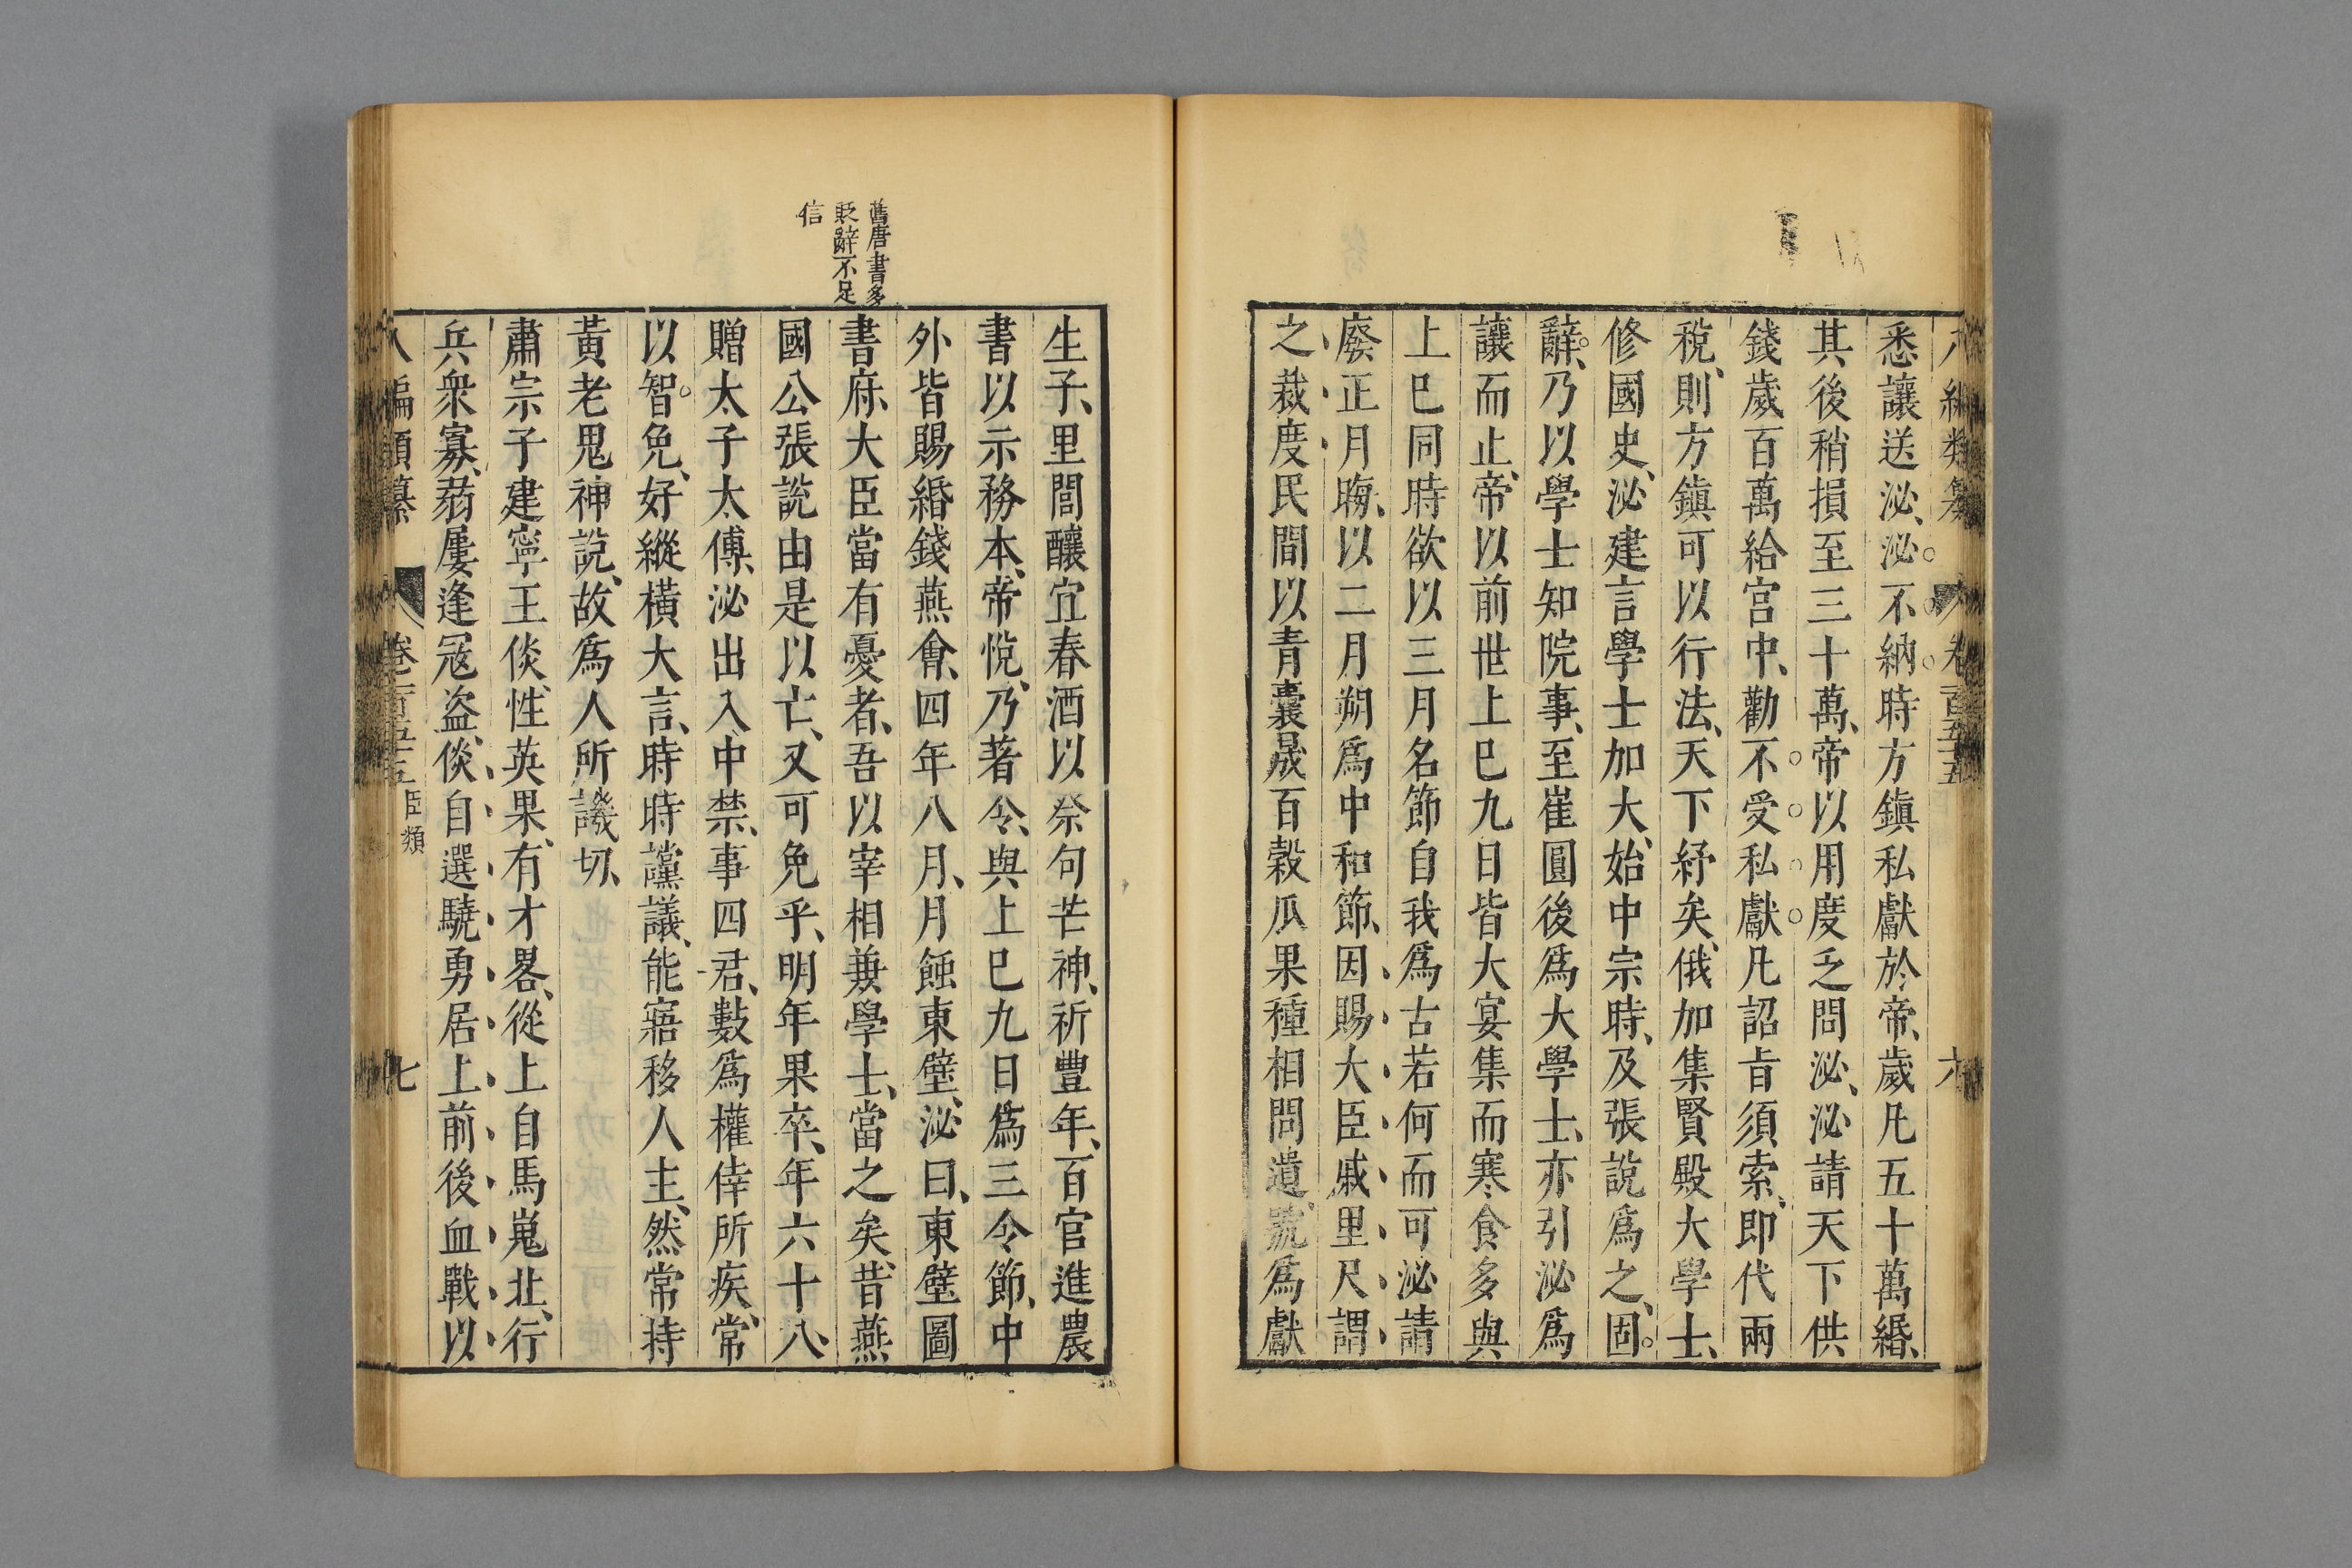 八編類纂　卷一百五十五　六
悉讓送泌、泌不納時方鎮私獻於帝、歲凡五十萬緡、
其後稍損至三十萬、帝以用度乏問泌、泌請天下供
錢歲百萬給宮中、勸不受私獻凡詔旨須索、即代兩
稅、則方鎮可以行法、天下紓矣、俄加集賢殿大學士、
修國史、泌建言學士加大、始中宗時、及張說爲之、固
辭、乃以學士知院事、至崔圓後爲大學士、亦引泌爲
讓而止、帝以前世上巳九日皆大宴集而寒食多與
上巳同時欲以三月名節自我爲古若何而可泌請
廢正月晦、以二月朔爲中和節、因賜大臣戚里尺謂
之裁度民間以青囊晟百穀瓜果種相問遺、號爲獻
生子、里閭釀宜春酒以祭句芒神、祈豐年、百官進農
書以示務本、帝悅、乃著令、與上巳九日爲三令節、中
外皆賜緡錢燕會、四年八月、月蝕東壁、泌曰、東壁圖
書府、大臣當有憂者、吾以宰相兼學士、當之矣、昔燕
國公張說由是以亡、又可免乎、明年果卒、年六十八、
贈太子太傅、泌出入中禁、事四君、數爲權倖所疾、常
以智免、好縱橫大言、時時讜議、能寤移人主、然常持
黃老鬼神說、故爲人所譏切、
肅宗子建寧王倓、性英果、有才畧、從上自馬嵬北、行
兵衆寡、弱屢逢寇盜、倓自選驍勇居上前後血戰以
八編類纂　卷一百五十五　臣類　七
舊唐書多
貶辭不足
信